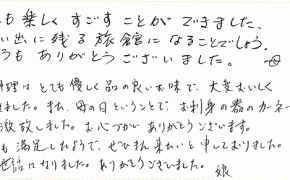 も楽しくすごすことができました。
い出に残る旅館になることでしょう。
うもありがとうございました。 母
料理はとても優しく品の良いお味で、大変おいしく
ました。また、母の日ということで、お刺身の器のカーネー
激致しました。お心づかいありがとうございます。
も満足したようで、ぜひまた来たいと申しておりました。
世話になりました。ありがとうございました。 娘